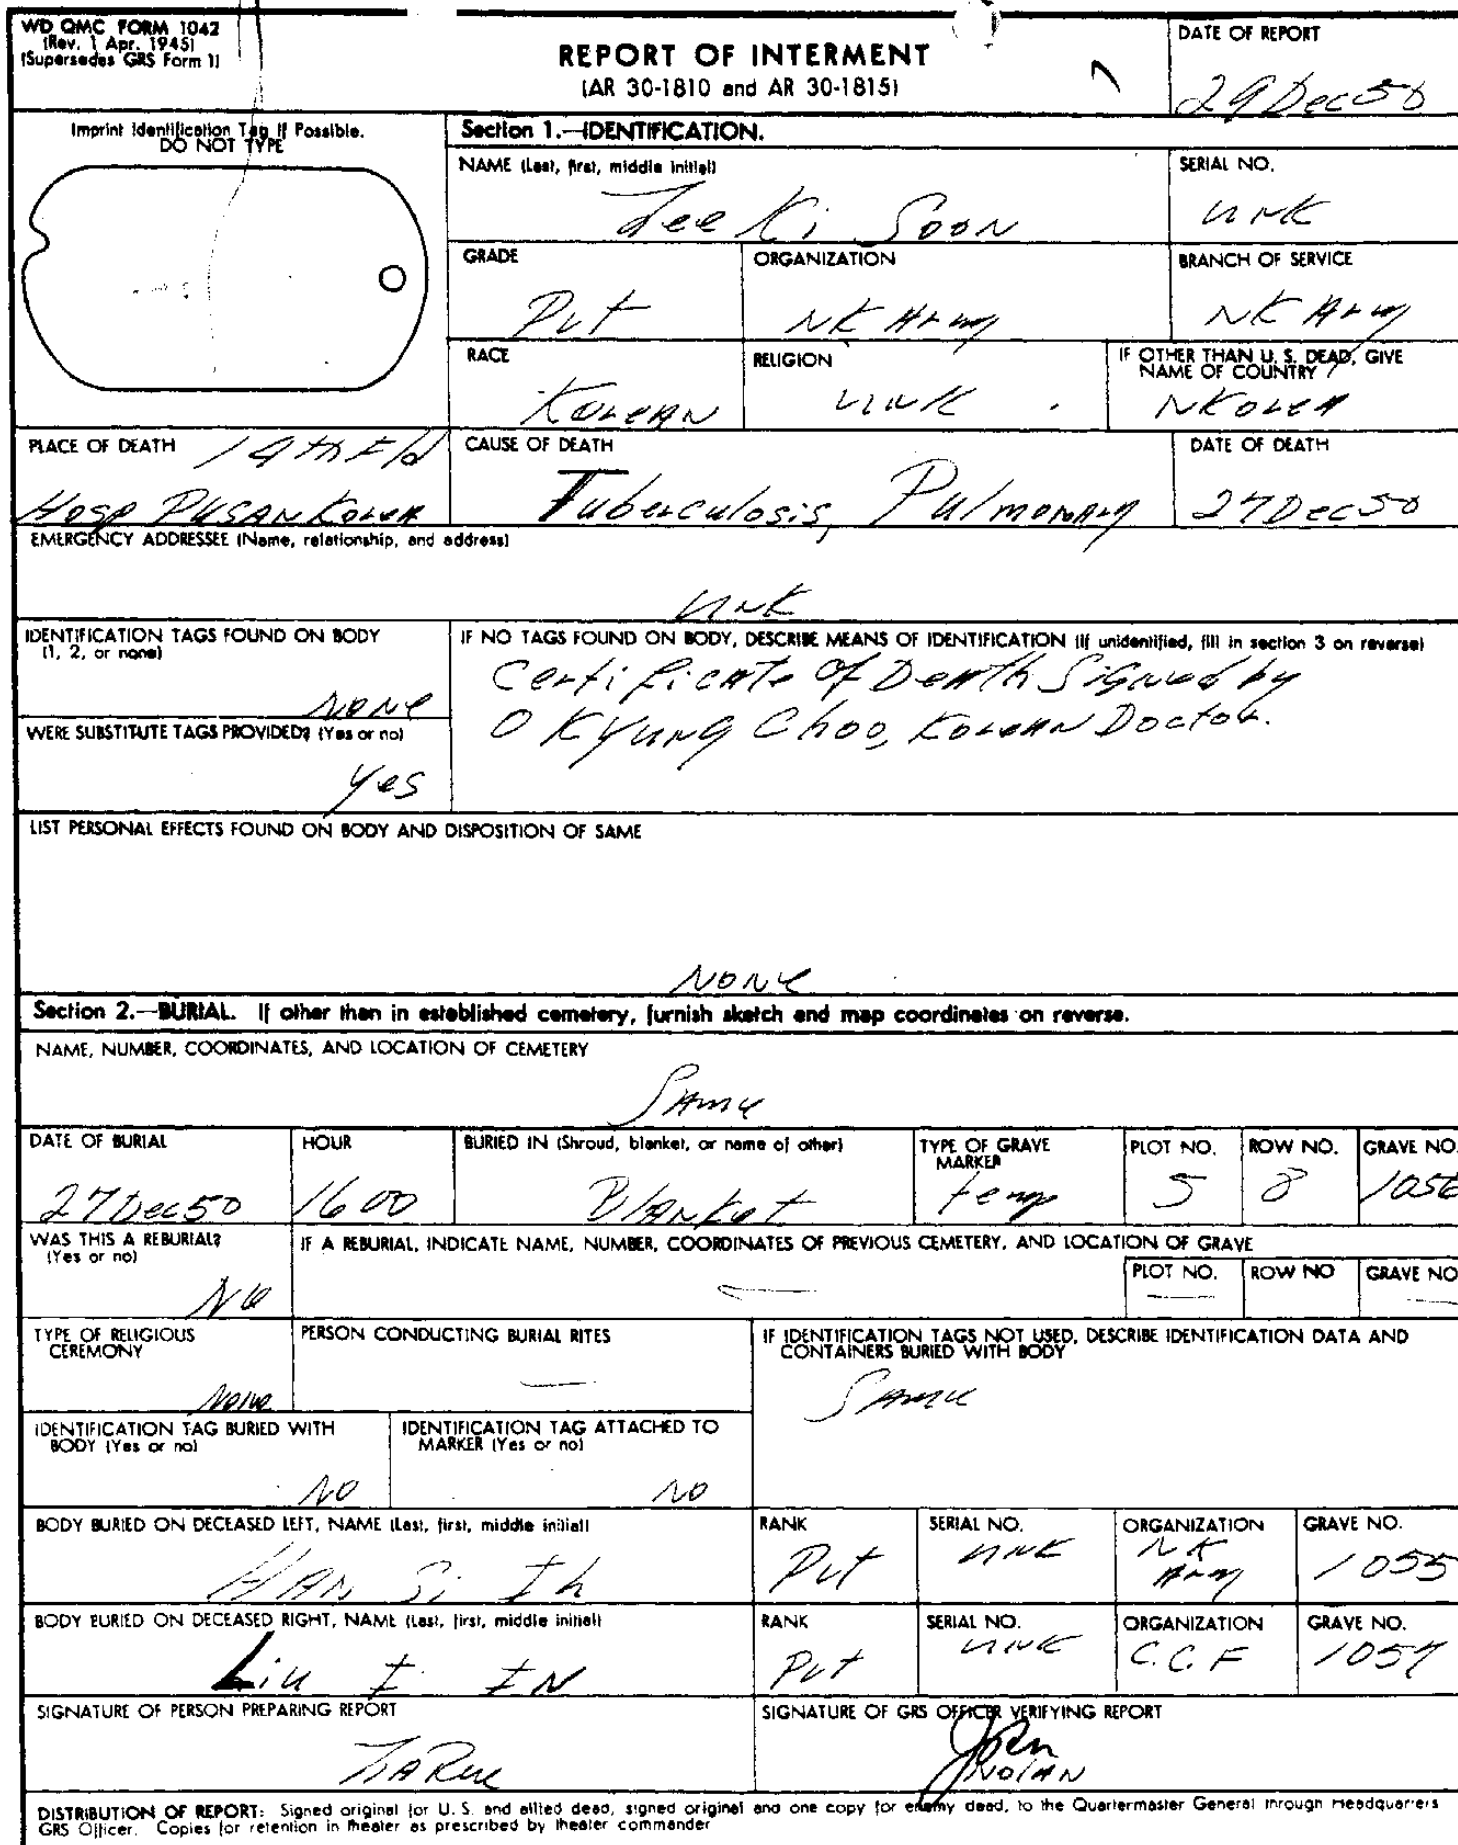 WD QMC FORM 1042
(Rev. 1 Apr. 1945)
(Supersedes GRS Form 1)
REPORT OF INTERMENT
(AR 30-1810 and AR 30-1815)
DATE OF REPORT
29 Dec 50
Imprint Identification Tag If Possible.
DO NOT TYPE
Section 1.—IDENTIFICATION.
NAME (Last, first, middle initial)
Lee Ki Soon
SERIAL NO.
UNK
GRADE
Pvt
ORGANIZATION
NK Army
BRANCH OF SERVICE
NK Army
RACE
Korean
RELIGION
UNK
IF OTHER THAN U. S. DEAD, GIVE
NAME OF COUNTRY
N Korea
PLACE OF DEATH 14th Fld
Hosp PUSAN Korea
CAUSE OF DEATH
Tuberculosis, Pulmonary
DATE OF DEATH
27 Dec 50
EMERGENCY ADDRESSEE (Name, relationship, and address)
UNK
IDENTIFICATION TAGS FOUND ON BODY
(1, 2, or none)
None
IF NO TAGS FOUND ON BODY, DESCRIBE MEANS OF IDENTIFICATION (If unidentified, fill in section 3 on reverse)
Certificate of Death Signed by
O Kyung Choo, Korean Doctor.
WERE SUBSTITUTE TAGS PROVIDED? (Yes or no)
yes
LIST PERSONAL EFFECTS FOUND ON BODY AND DISPOSITION OF SAME
None
Section 2.—BURIAL. If other than in established cemetery, furnish sketch and map coordinates on reverse.
NAME, NUMBER, COORDINATES, AND LOCATION OF CEMETERY
Same
DATE OF BURIAL
27 Dec 50
HOUR
1600
BURIED IN (Shroud, blanket, or name of other)
Blanket
TYPE OF GRAVE
MARKER
temp
PLOT NO.
5
ROW NO.
8
GRAVE NO.
1056
WAS THIS A REBURIAL?
(Yes or no)
No
IF A REBURIAL, INDICATE NAME, NUMBER, COORDINATES OF PREVIOUS CEMETERY, AND LOCATION OF GRAVE
—
PLOT NO.
—
ROW NO
GRAVE NO
—
TYPE OF RELIGIOUS
CEREMONY
None
PERSON CONDUCTING BURIAL RITES
—
IF IDENTIFICATION TAGS NOT USED, DESCRIBE IDENTIFICATION DATA AND
CONTAINERS BURIED WITH BODY
Same
IDENTIFICATION TAG BURIED WITH
BODY (Yes or no)
NO
IDENTIFICATION TAG ATTACHED TO
MARKER (Yes or no)
NO
BODY BURIED ON DECEASED LEFT, NAME (Last, first, middle initial)
HAN Si Ih
RANK
Pvt
SERIAL NO.
UNK
ORGANIZATION
NK
Army
GRAVE NO.
1055
BODY BURIED ON DECEASED RIGHT, NAME (Last, first, middle initial)
Liu I IN
RANK
Pvt
SERIAL NO.
UNK
ORGANIZATION
C.C.F
GRAVE NO.
1057
SIGNATURE OF PERSON PREPARING REPORT
LaRue
SIGNATURE OF GRS OFFICER VERIFYING REPORT
John
NOLAN
DISTRIBUTION OF REPORT: Signed original for U. S. and allied dead, signed original and one copy for enemy dead, to the Quartermaster General through Headquarters
GRS Officer. Copies for retention in theater as prescribed by theater commander